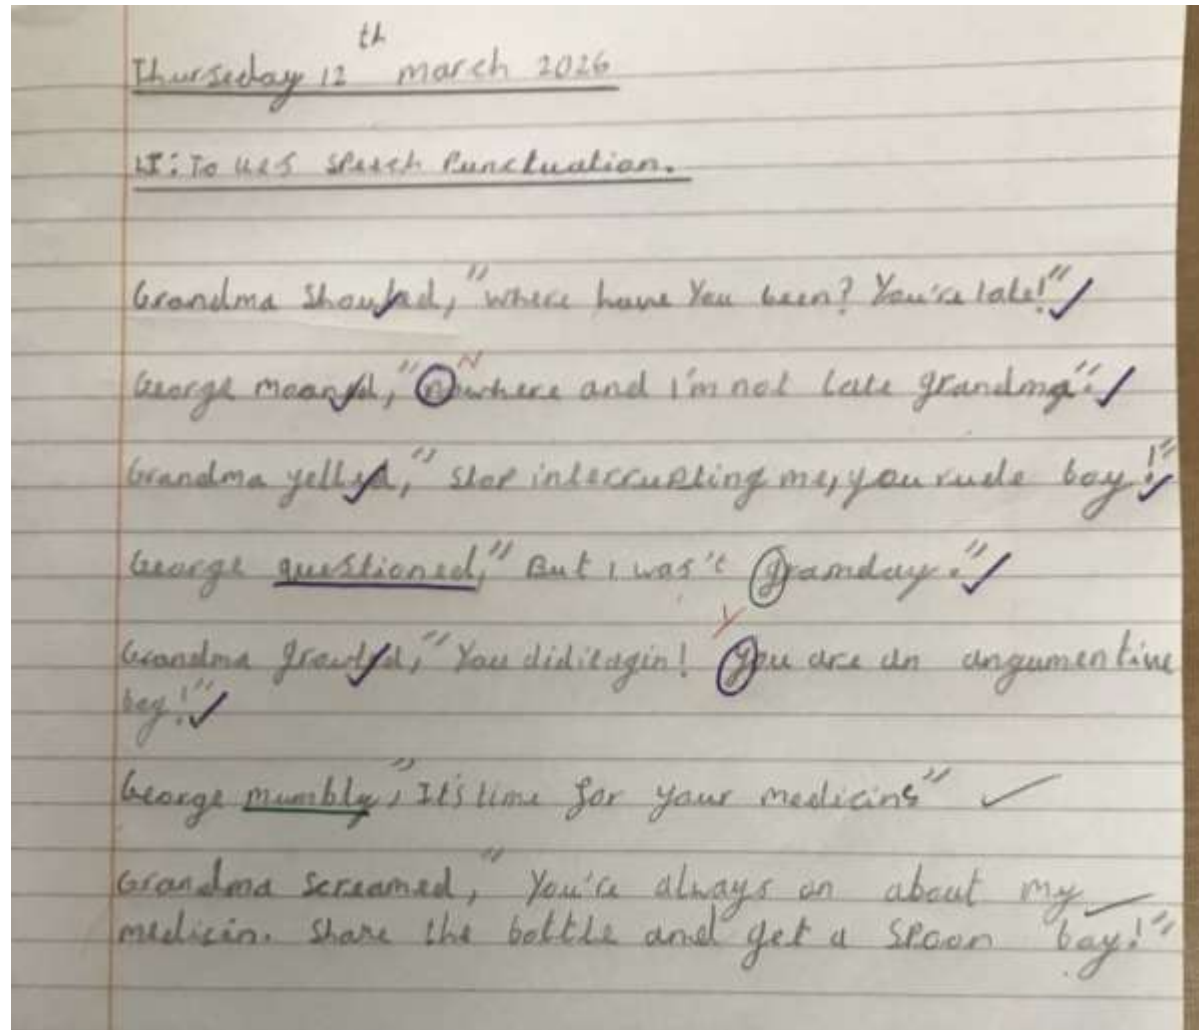 Thurseday 12th march 2026
LI: To ues speech Punctuation.
Grandma Shouted, "where have You been? You're late!"
George moaned, "nowhere and I'm not late grandma".
Grandma yelled, "Stop interrupting me, you rude boy!"
George questioned, "But I was't gramday."
Grandma growled, "You diditagin! you are an angumentive
boy!"
George mumbly, "It's time for your medicins"
Grandma screamed, "You're always on about my
medicin. Share the bottle and get a spoon boy!"